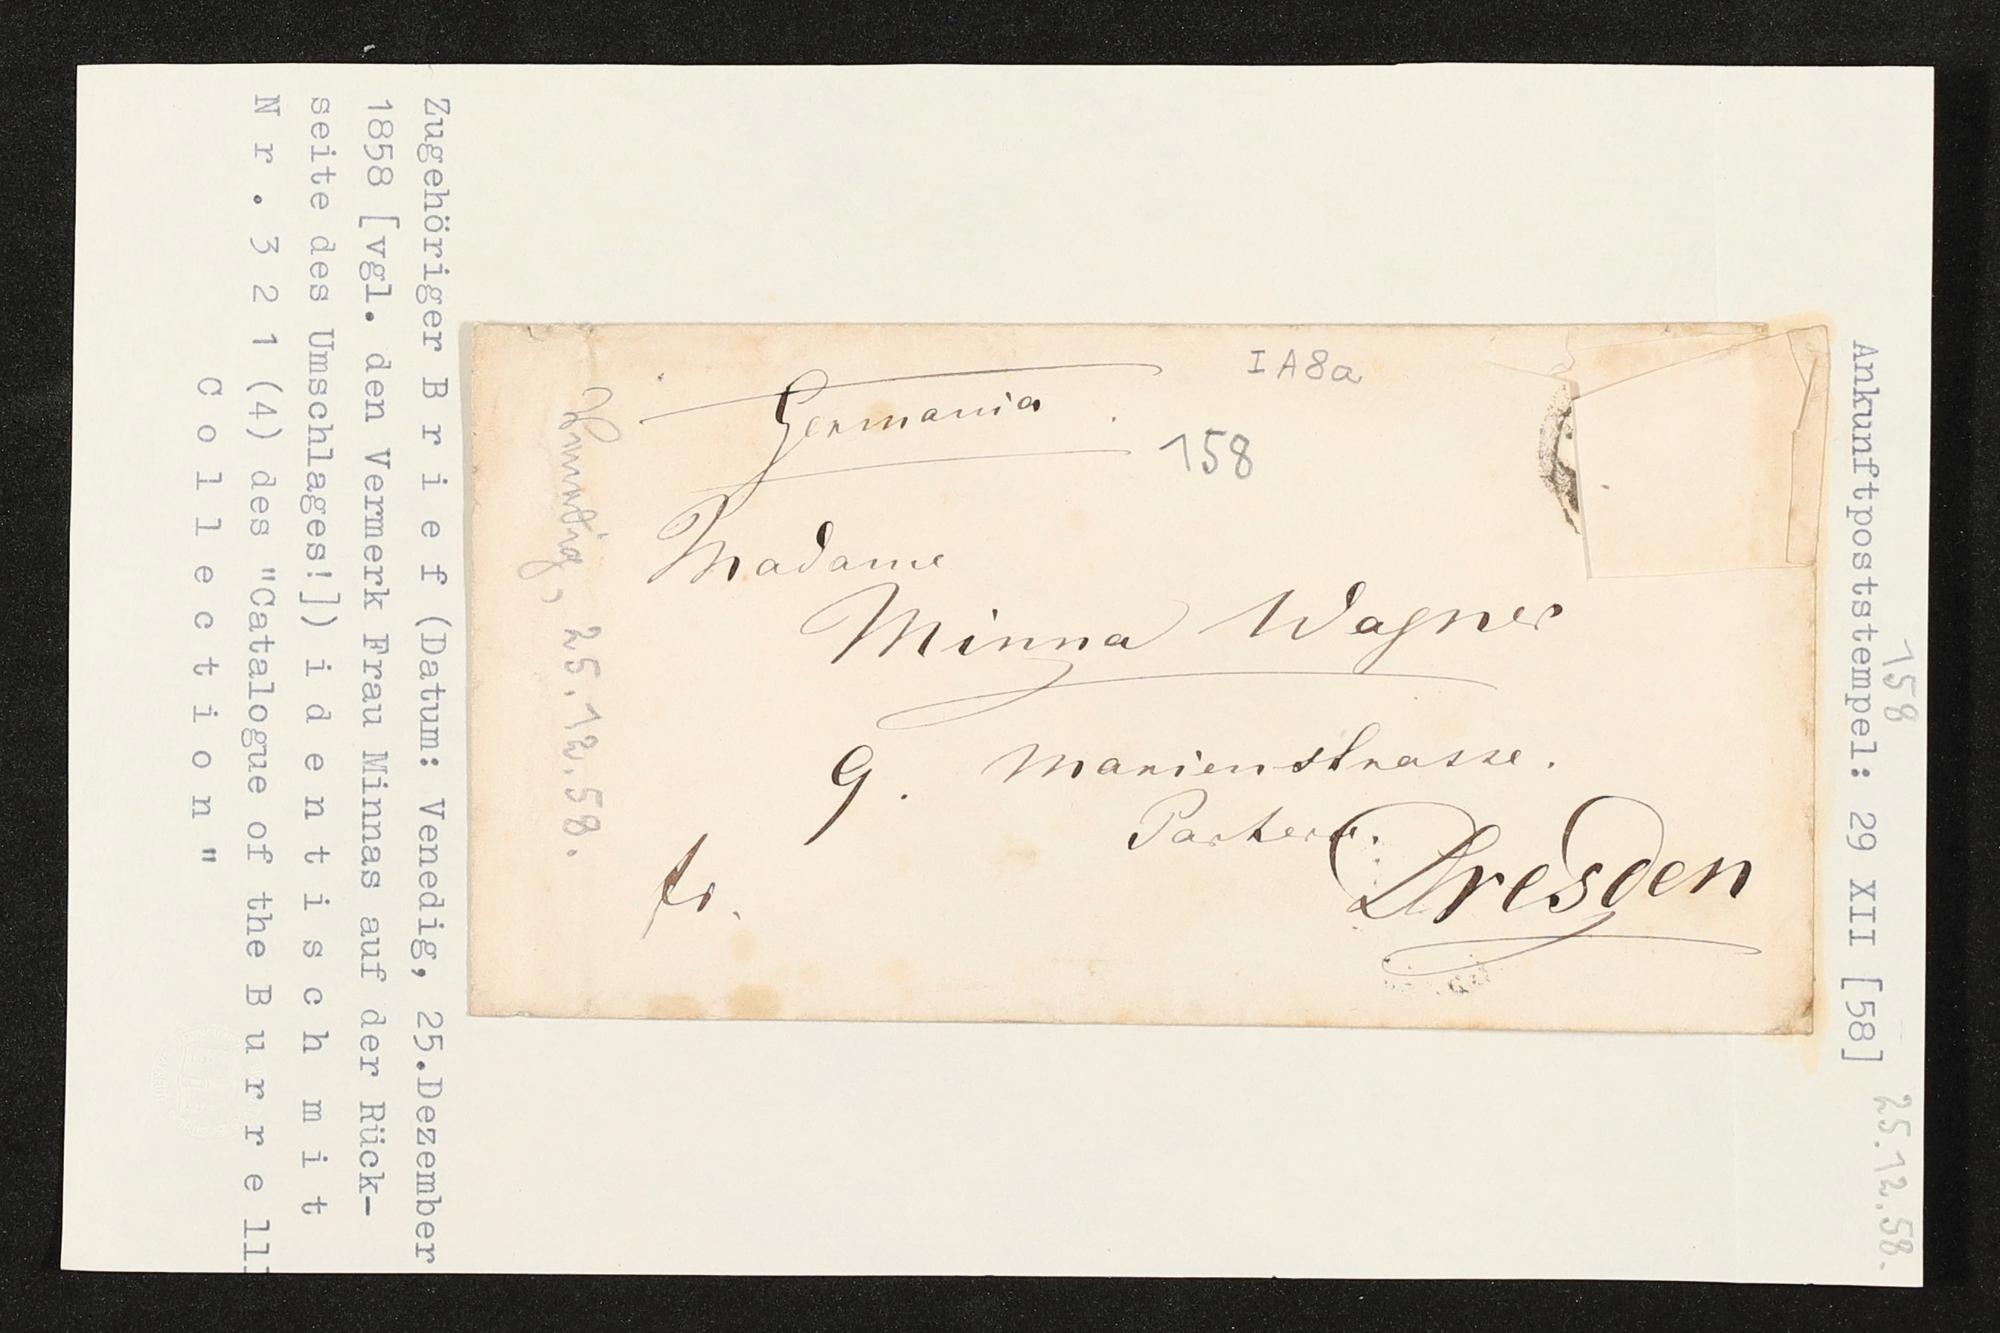 Ankunftpoststempel: 29 XII [58]
158
25.12.58.
I A8a
Germania
158
Madame
Minna Wagner
9. Marienstrasse.
Parterre.
Dresden
fr.
Venedig, 25.12.58.
Zugehöriger B r i e f (Datum: Venedig, 25.Dezember
1858 [vgl. den Vermerk Frau Minnas auf der Rück-
seite des Umschlages!]) i d e n t i s c h m i t
N r . 3 2 1 (4) des "Catalogue of the B u r r e ll
C o l l e c t i o n "